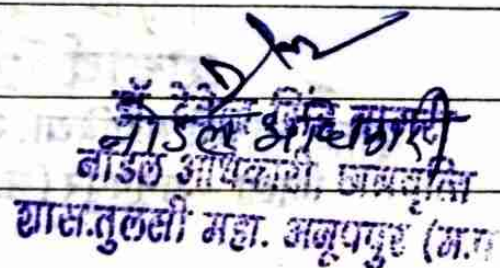 डॉ. देवेन्द्र सिंह
नोडल अधिकारी
नोडल अधिकारी, छात्रवृत्ति
शास.तुलसी महा. अनूपपुर (म.प्र